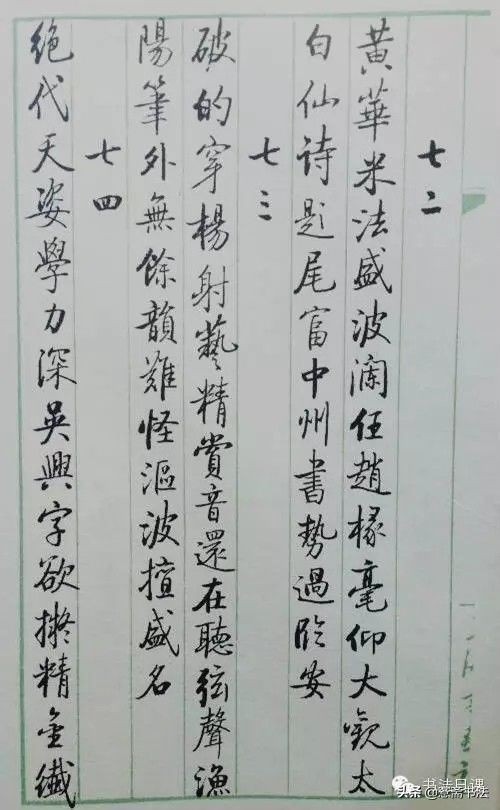 七二
黄華米法盛波澜任趙椽毫仰大觀太
白仙诗題尾富中州書勢過臨安
七三
破的穿楊射藝精賞音還在聽弦聲漁
陽筆外無餘韻難怪漚波擅盛名
七四
絶代天姿學力深吳興字欲擬精金纖
书法日课
头条@慈斋书法